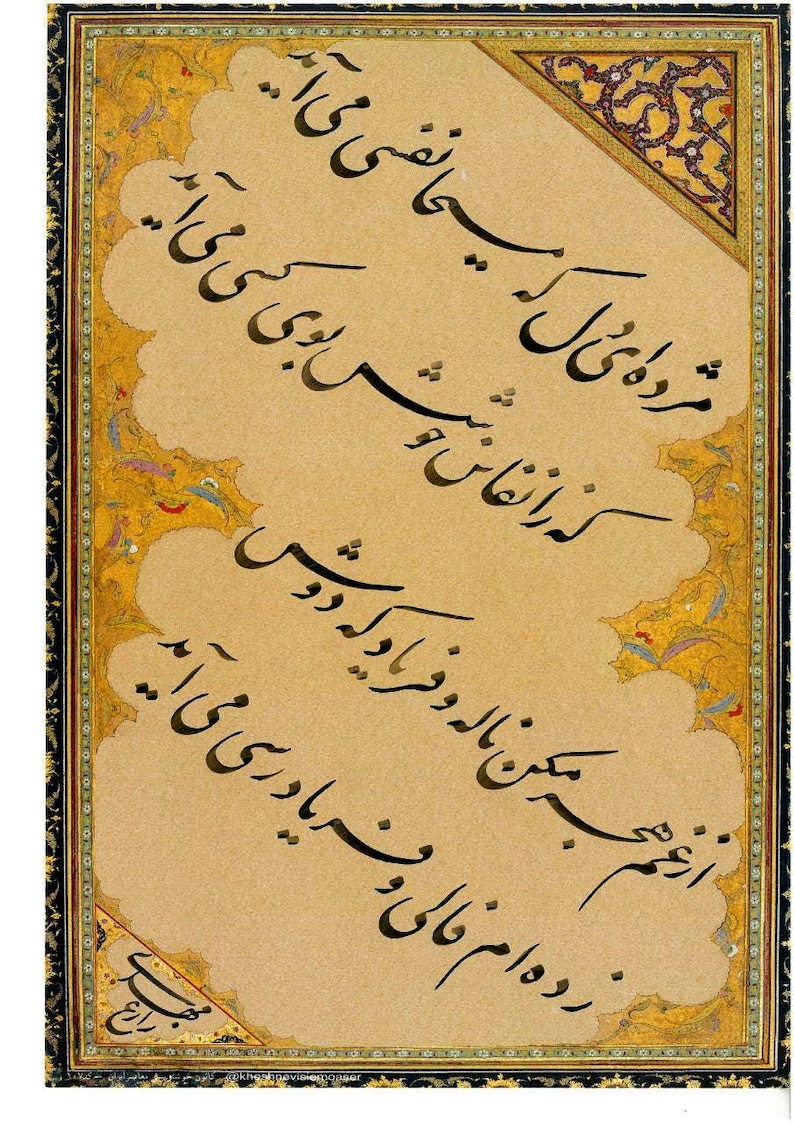 مژده ای دل که مسیحا نفسی می آید
که ز انفاس خوشش بوی کسی می آید
از غم هجر مکن ناله و فریاد که دوش
زده ام فالی و فریادرسی می آید
مهدی
زارع
@khoshnevisiemoaser